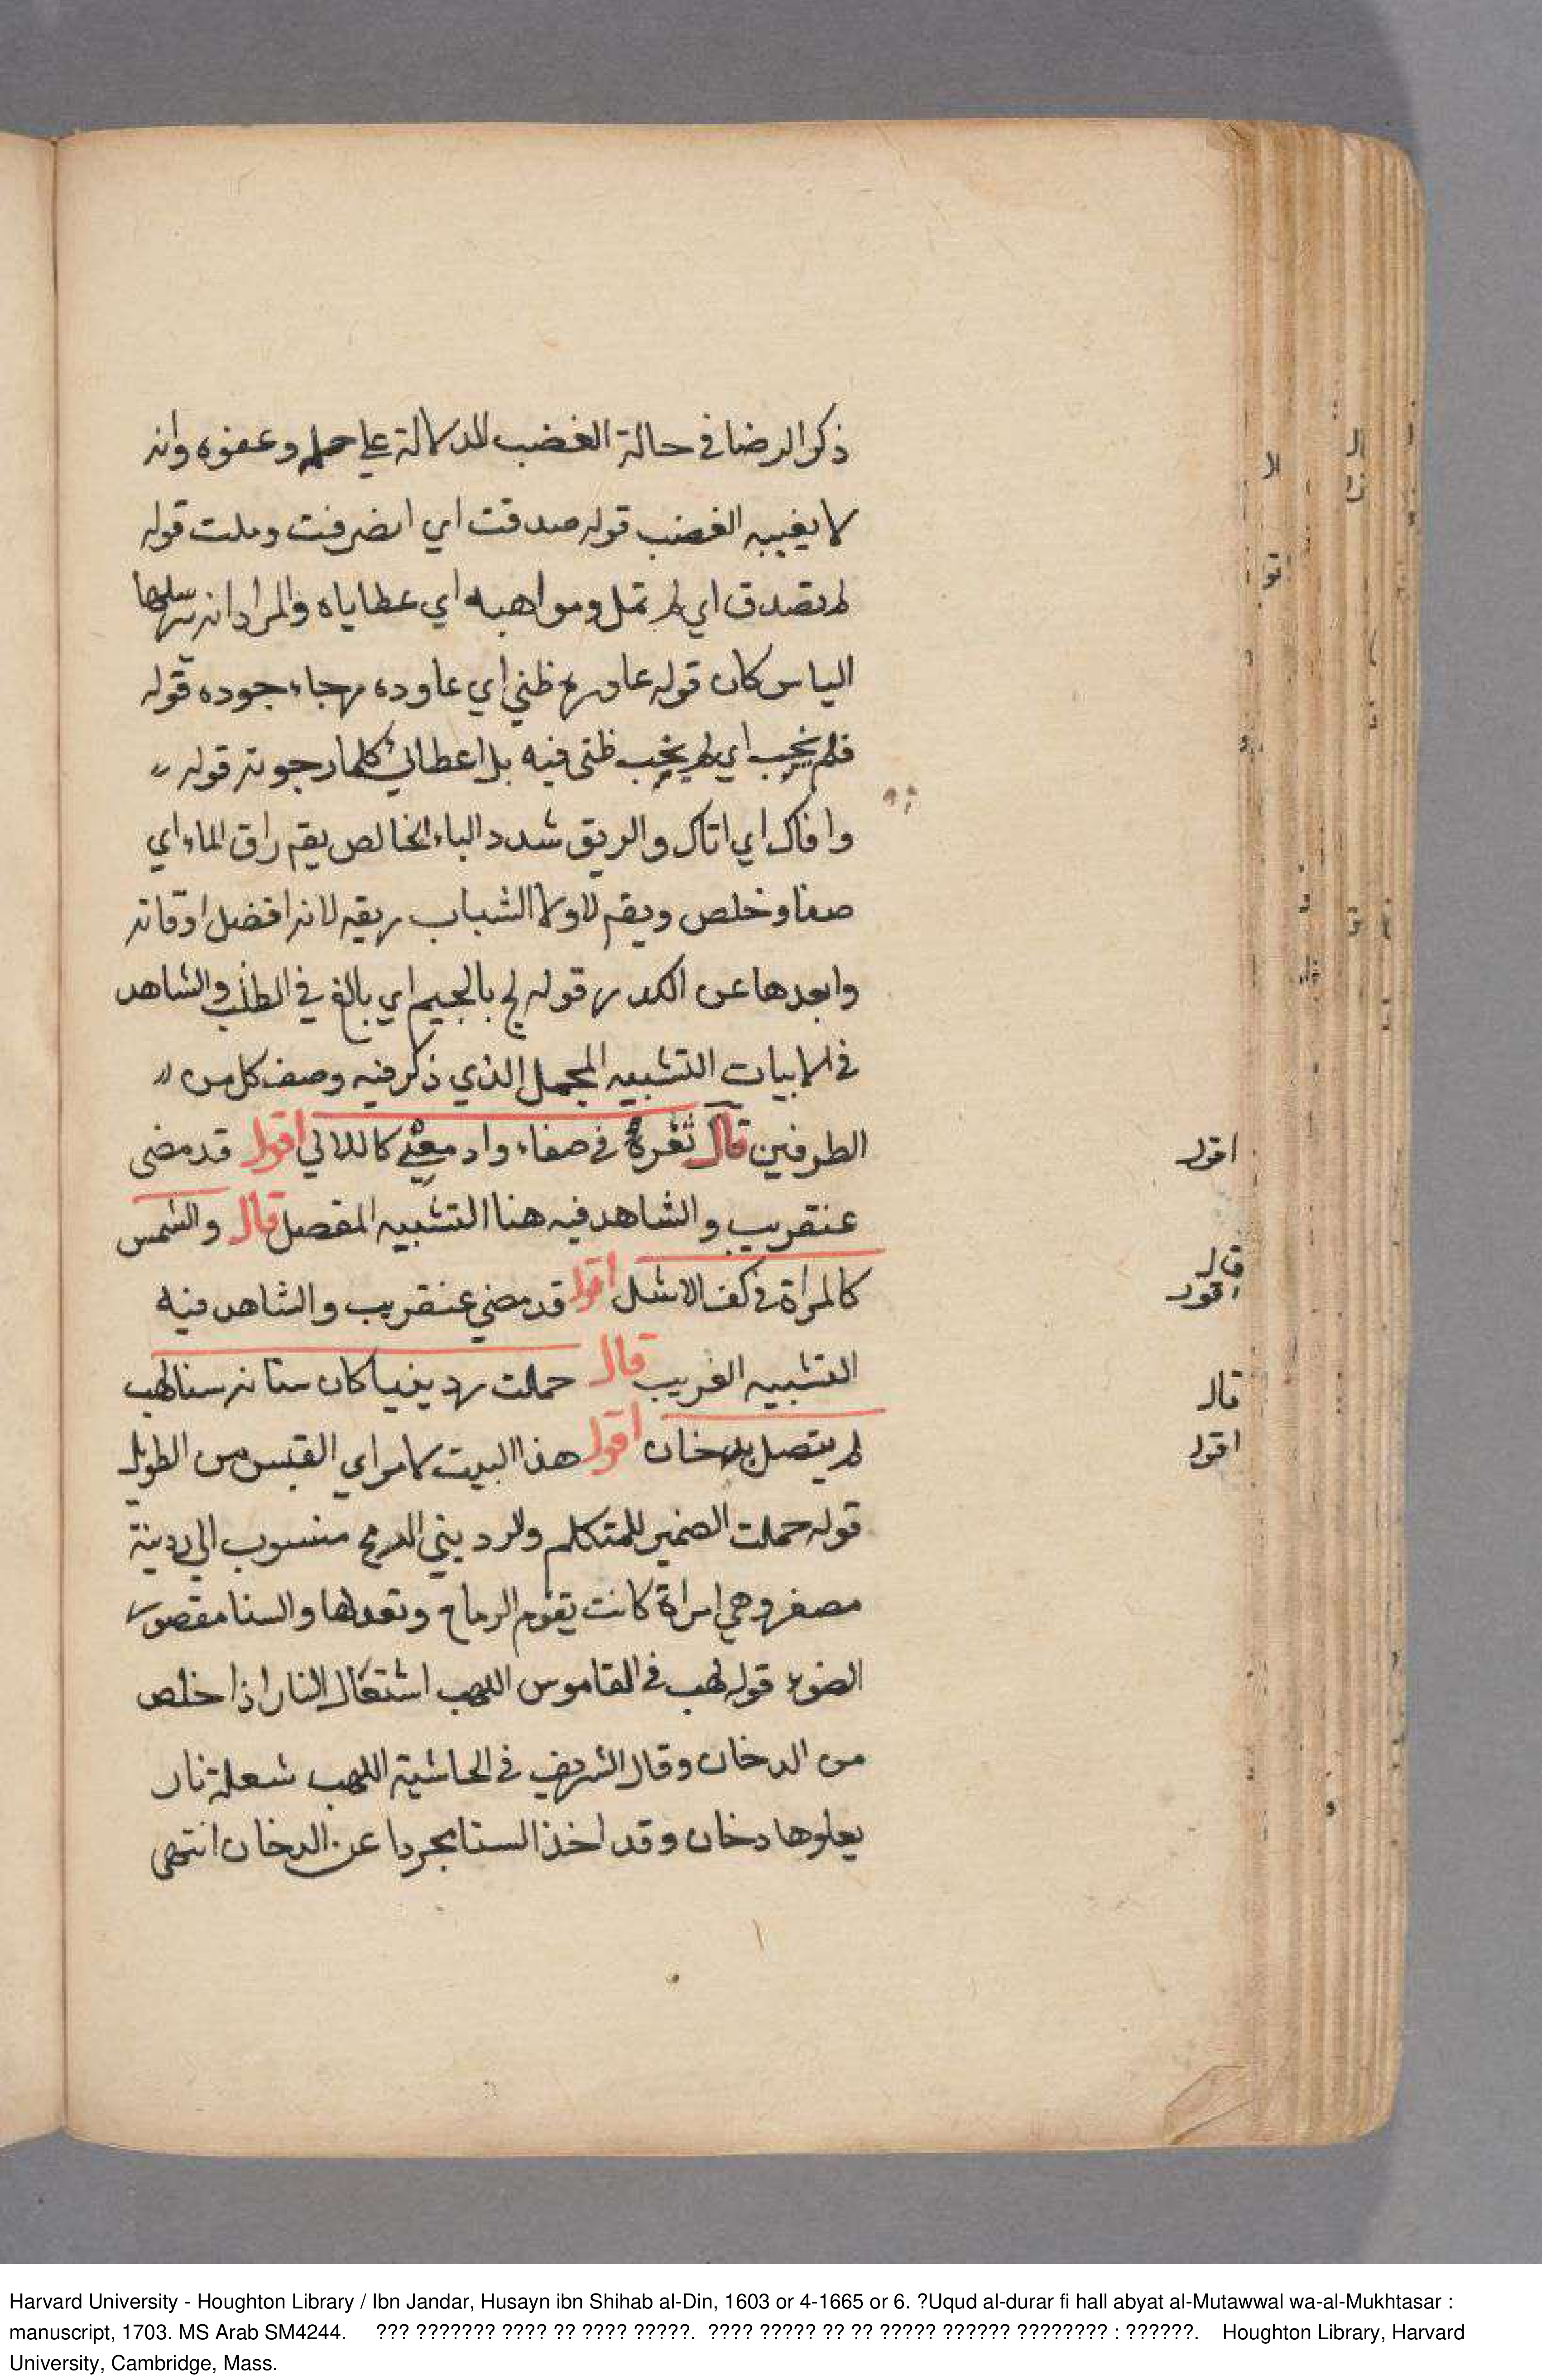 ذكر الرضا في حالة الغضب للدلالة علي حمله وعفوه وانه
لا يغيبه الغضب قوله صدفت اي انصرفت وملت قوله
لم تصدف اي لم تمل ومواهبه اي عطاياه والمراد انه
الياس كان قوله عاوده ظني اي عاوده رجاء جوده قوله
فلم يخب اي لم يخب ظني فيه بل اعطاني كلما رجوته قوله
وافاك اي اتاك والريق شدد الياء الخالص يقم راق الماء اي
صفا وخلص ويقم لاول الشباب ريقه لانه افضل اوقاته
وابعدها عن الكدر قوله لج بالجيم اي بالغ في الطلب والشاهد
في الابيات التشبيه المجمل الذي ذكر فيه وصف كل من
الطرفين قال ثغره في صفاء وادمعي كاللالي اقول قد مضى
عنقريب والشاهد فيه هنا التشبيه المفصل قال والشمس
كالمراة في كف الاشل اقول قد مضي عنقريب والشاهد فيه
التشبيه الغريب قال حملت ردينيا كان سنانه سنا لهب
لم يتصل بدخان اقول هذا البيت لامراي القيس من الطويل
قوله حملت الضمير للمتكلم والرديني الرمح منسوب الي ردينة
مصغر وهي امراة كانت تقوم الرماح وتعدلها والسنا مقصور
الضوء قوله لهب في القاموس اللهب اشتعال النار اذا خلص
من الدخان وقال الشريف في الحاشية اللهب شعلة نار
يعلوها دخان وقد اخذ السنا مجردا عن الدخان انتهى
اقول
قال
اقول
قال
اقول
Harvard University - Houghton Library / Ibn Jandar, Husayn ibn Shihab al-Din, 1603 or 4-1665 or 6. ?Uqud al-durar fi hall abyat al-Mutawwal wa-al-Mukhtasar :
manuscript, 1703. MS Arab SM4244. ??? ??????? ???? ?? ???? ?????. ???? ????? ?? ?? ????? ?????? ???????? : ??????. Houghton Library, Harvard
University, Cambridge, Mass.